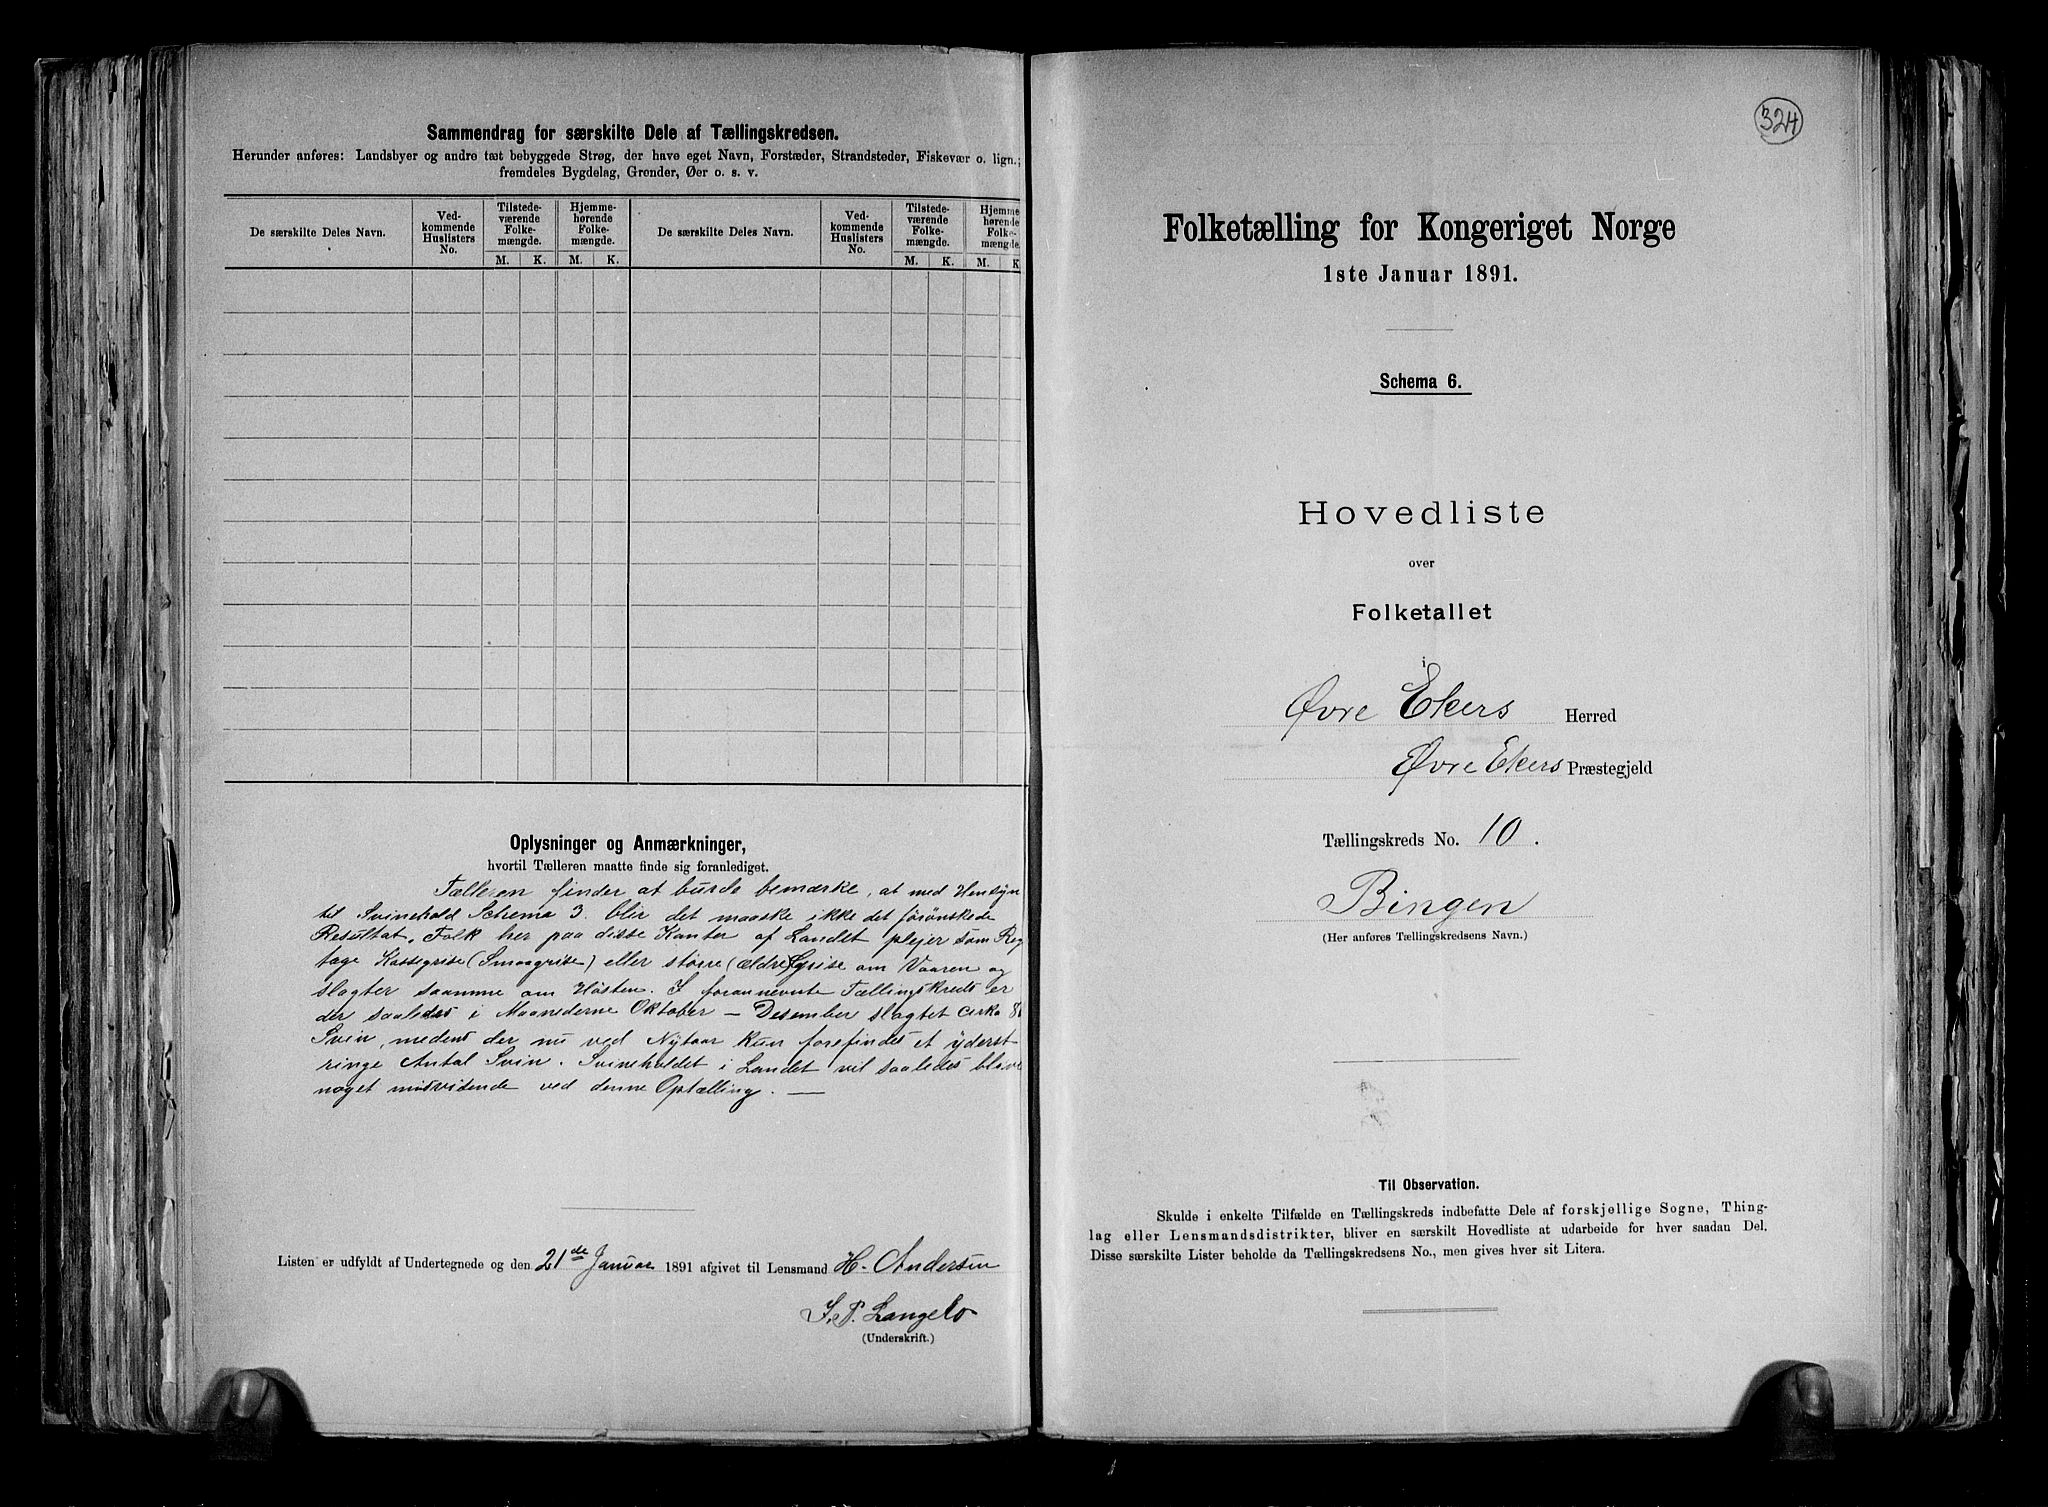 Sammendrag for særskilte Dele af Tællingskredsen.
Herunder anføres: Landsbyer og andre tæt bebyggede Strøg, der have eget Navn, Forstæder, Strandsteder, Fiskevær o. lign.;
fremdeles Bygdelag, Grender, Øer o. s. v.
De særskilte Deles Navn.
Ved-
kommende
Huslisters
No.
Tilstede-
værende
Folke-
mængde.
M. K.
Hjemme-
hørende
Folke-
mængde.
M. K.
De særskilte Deles Navn.
Ved-
kommende
Huslisters
No.
Tilstede-
værende
Folke-
mængde.
M. K.
Hjemme-
hørende
Folke-
mængde.
M. K
Oplysninger og Anmærkninger,
hvortil Tælleren maatte finde sig foranlediget.
Tælleren finder at burde bemærke, at med Hensyn
til Svinehold Schema 3. blir det maaske ikke det forønskede
Resultat. Folk her paa disse Kanter af Landet plejer som Reg
tage Kassegrise (Smaagrise) eller større (ældre) Grise om Vaaren og
slagter saamme om Høsten. I forannevnte Tællingskreds er
der saaledes i Maanederne Oktober — Desember slagtet cirka 8
Svin, medens der nu ved Nytaar kun forefindes et yderst
ringe Antal Svin. Svineholdet i Landet vil saaledes blive
noget misvisende ved denne Optælling. —
Listen er udfyldt af Undertegnede og den 21de Januar 1891 afgivet til Lensmand H. Andersen
J. P. Langelo
(Underskrift.)
324
Folketælling for Kongeriget Norge
1ste Januar 1891.
Schema 6.
Hovedliste
over
Folketallet
i
Øvre Ekers Herred
Øvre Ekers Præstegjeld
Tællingskreds No. 10.
Bingen
(Her anføres Tællingskredsens Navn.)
Til Observation.
Skulde i enkelte Tilfælde en Tællingskreds indbefatte Dele af forskjellige Sogne, Thing-
lag eller Lensmandsdistrikter, bliver en særskilt Hovedliste at udarbeide for hver saadan Del.
Disse særskilte Lister beholde da Tællingskredsens No., men gives hver sit Litera.